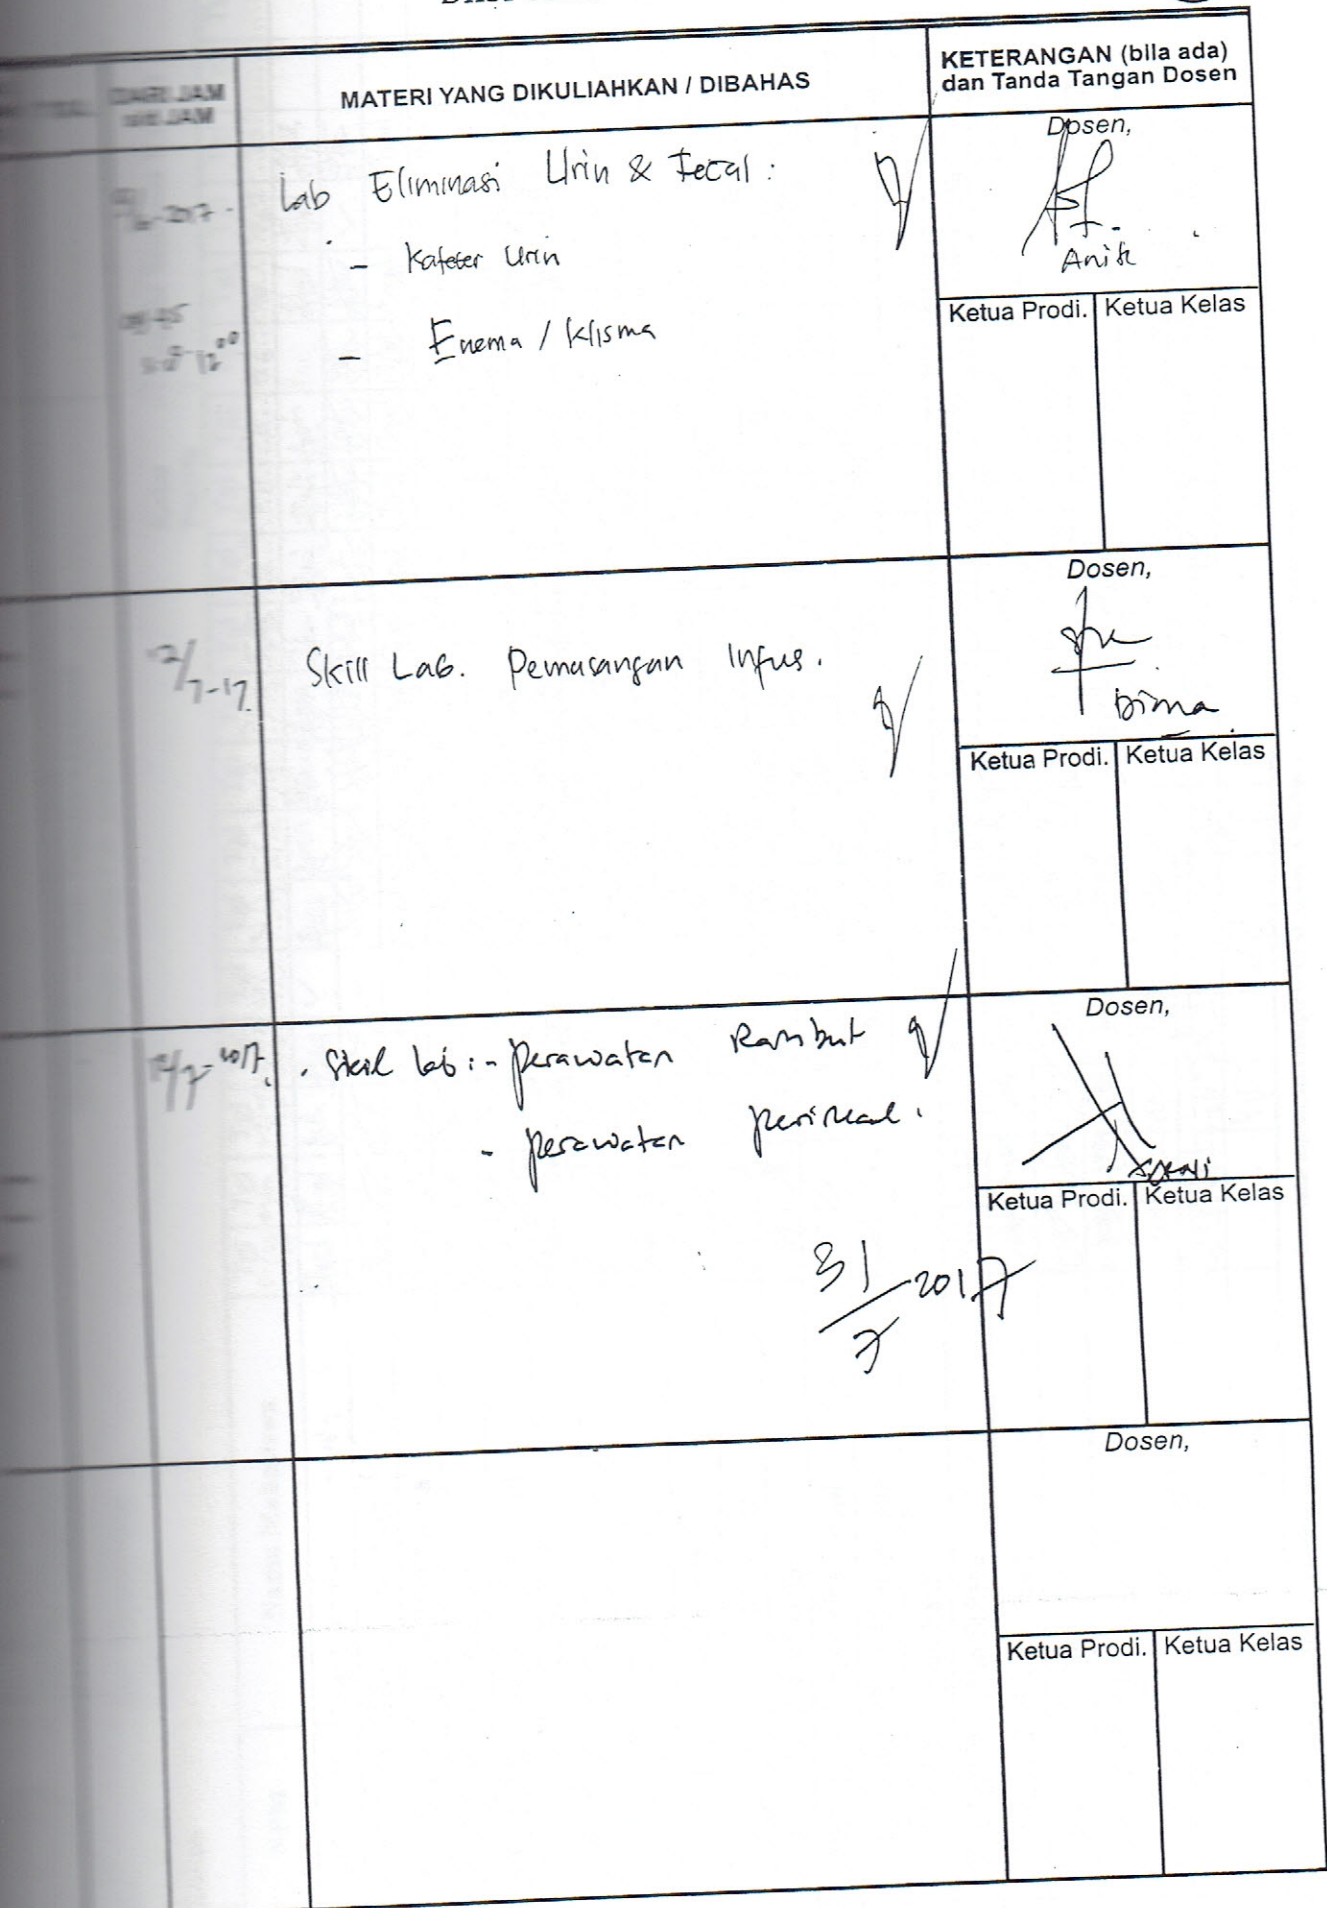 DARI JAM
s/d JAM
MATERI YANG DIKULIAHKAN / DIBAHAS
KETERANGAN (bila ada)
dan Tanda Tangan Dosen
Lab Eliminasi Urin & Fecal :
- Kateter Urin
- Enema / Klisma
12⁰⁰
Dosen,
Anik
Ketua Prodi. Ketua Kelas
12/7-17.
Skill Lab. Pemasangan Infus.
Dosen,
Bima
Ketua Prodi. Ketua Kelas
. Skil lab : - perawatan Rambut
- perawatan perineal.
31/7 2017
Dosen,
Ketua Prodi. Ketua Kelas
Dosen,
Ketua Prodi. Ketua Kelas